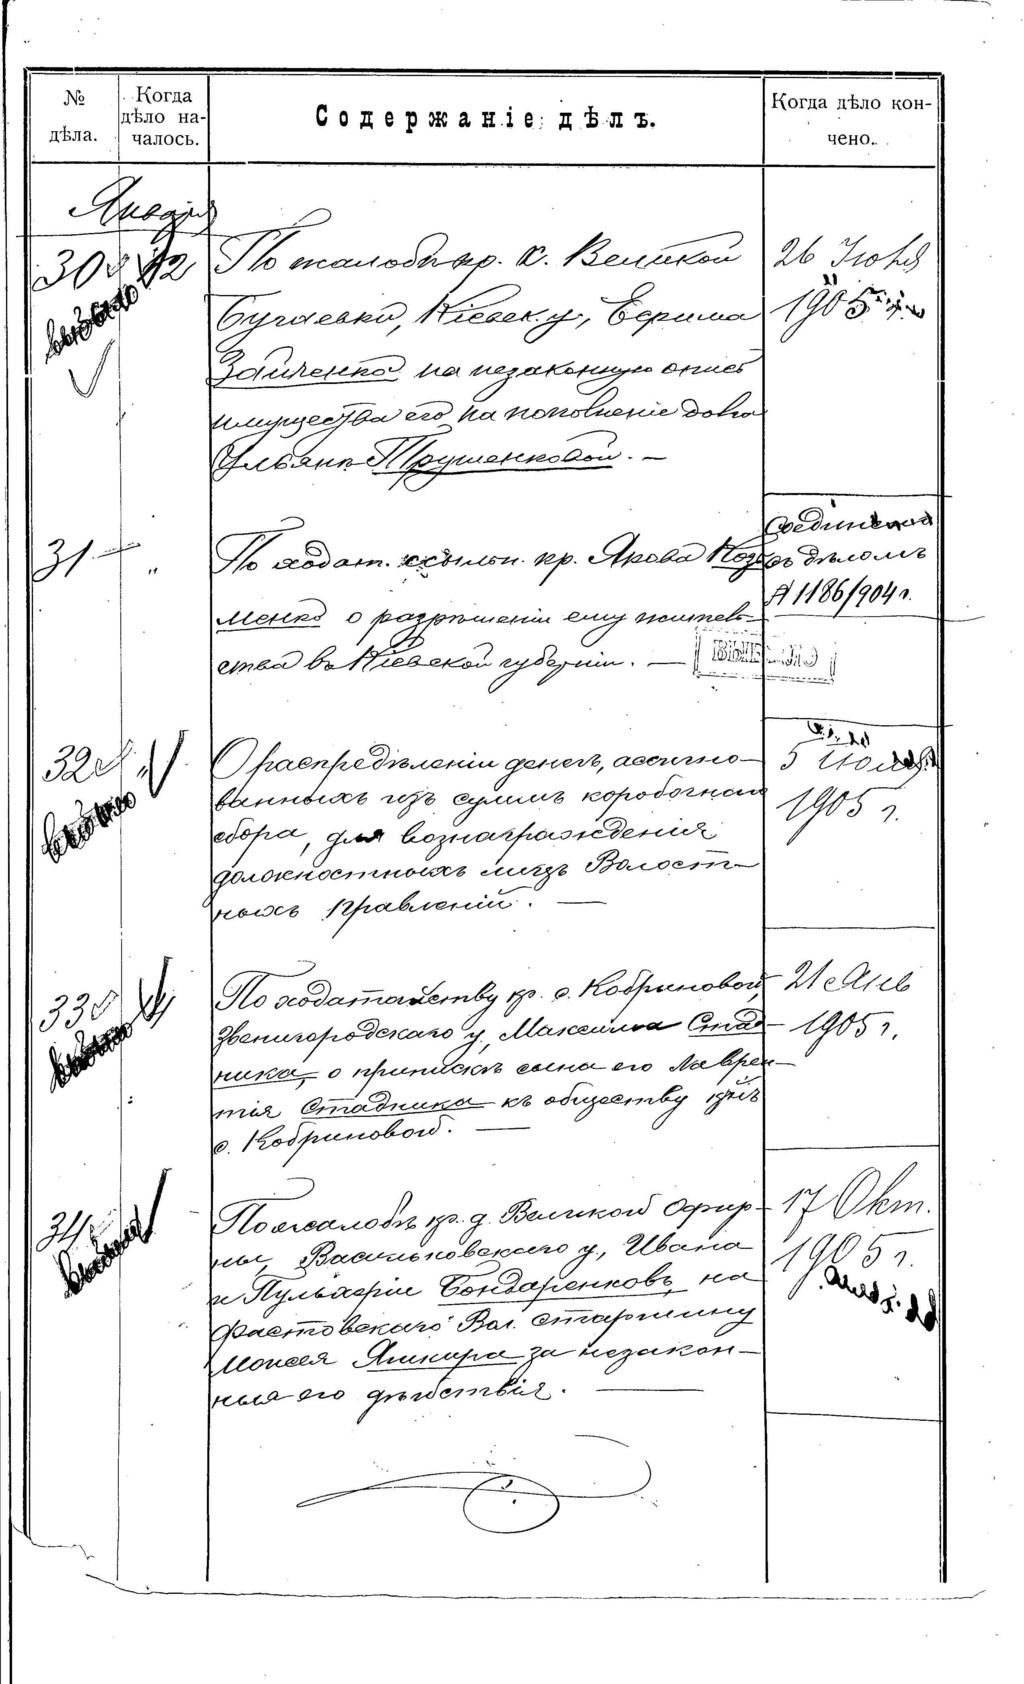 № дѣла.
Когда дѣло началось.
Содержаніе дѣлъ.
Когда дѣло кончено.
Января
30 12
По жалобѣ кр. с. Великой
Бугаевки, Кіевск. у., Ефима
Зайченко на незаконную опись
имущества его на пополненіе долга
Ульянѣ Трушенковой. —
26 Іюля
1905 г.
31 — "
По ходат. ссыльн. кр. Якова Коз
менко о разрѣшеніи ему житель-
ства въ Кіевской губерніи. —
Соединено
съ дѣломъ
№ 1186/904 г.
32 "
О распредѣленіи денегъ, ассигно-
ванныхъ изъ суммъ коробочнаго
сбора, для вознагражденія
должностныхъ лицъ Волост-
ныхъ Правленій. —
5 Іюля
1905 г.
33 "
По ходатайству кр. с. Кобриновой,
Звенигородскаго у., Максима Стад-
ника, о припискѣ сына его Лаврен-
тія Стадника къ обществу кр-нъ
с. Кобриновой. —
21 Янв
1905 г.
34
По жалобѣ кр. д. Великой Офир-
ны, Васильковскаго у., Ивана
и Пульхеріи Бондаренковъ, на
Фастовскаго Вол. старшину
Моисея Яшкира за незакон-
ныя его дѣйствія. —
17 Окт.
1905 г.